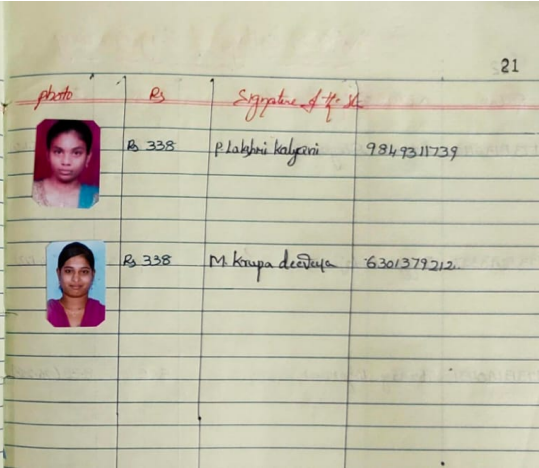 21
photo Rs Signature of the St
Rs 338 P. Lakshmi Kalyani 9849311739
Rs 338 M. Krupa deevena 6301379212